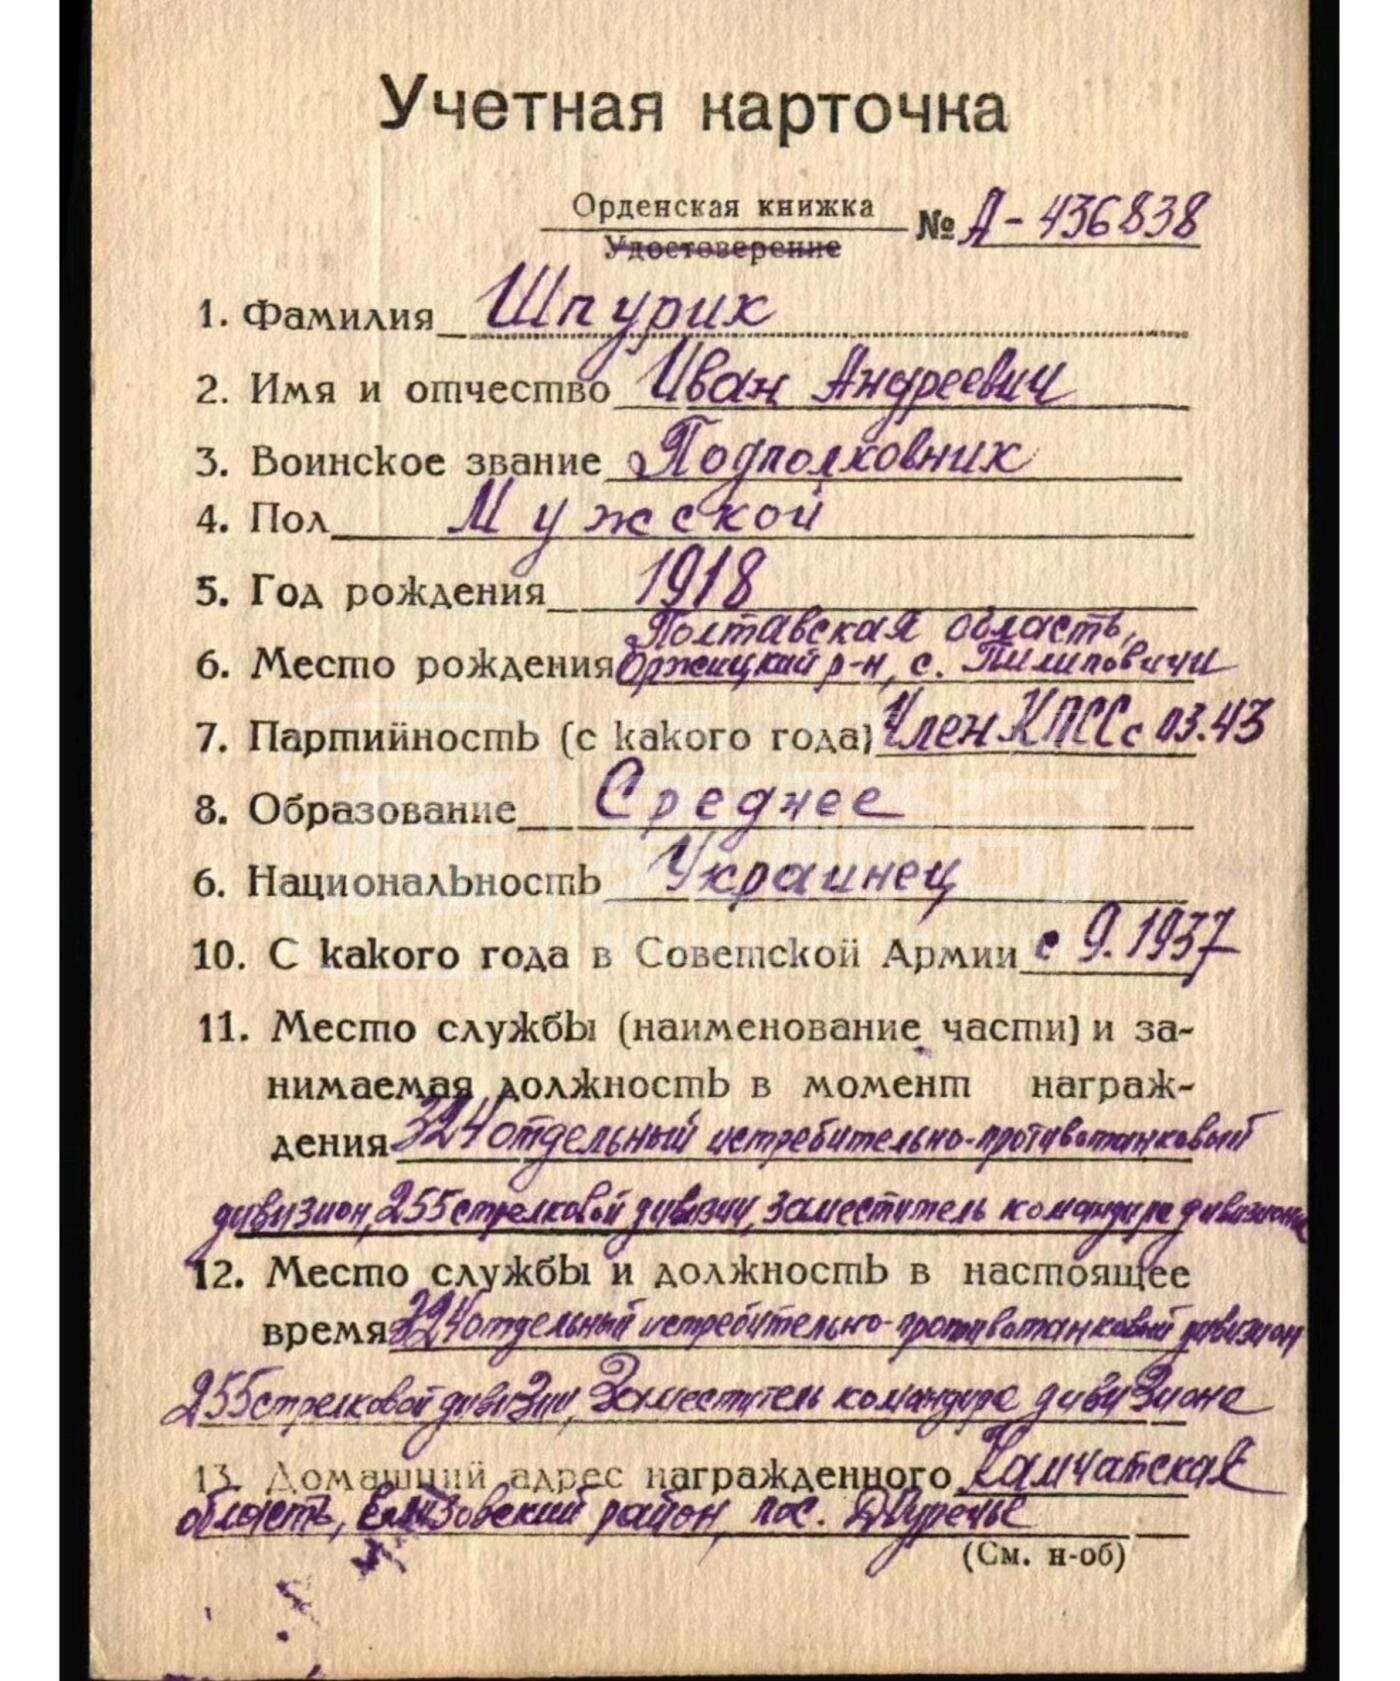 Учетная карточка
Орденская книжка
Удостоверение
№ А-436838
1. Фамилия Шпурик
2. Имя и отчество Иван Андреевич
3. Воинское звание Подполковник
4. Пол Мужской
5. Год рождения 1918
Полтавская область,
6. Место рождения Оржицкий р-н, с. Пилиповичи
7. Партийность (с какого года) Член КПСС с 03.43
8. Образование Среднее
6. Национальность Украинец
10. С какого года в Советской Армии с 9.1937
11. Место службы (наименование части) и за-
нимаемая должность в момент награж-
дения 324 отдельный истребительно-противотанковый
дивизион, 255 стрелковой дивизии, заместитель командира дивизиона
12. Место службы и должность в настоящее
время 324 отдельный истребительно-противотанковый дивизион
255 стрелковой дивизии, Заместитель командира дивизиона
13. Домашний адрес награжденного Камчатская
область, Елизовский район, пос. Двуречье
(См. н-об)